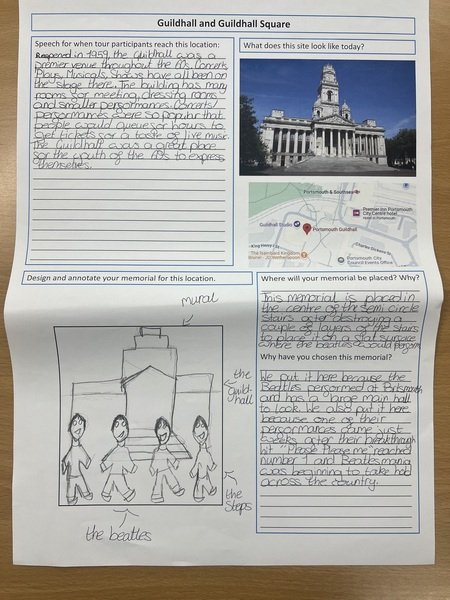 Guildhall and Guildhall Square
Speech for when tour participants reach this location:
Reopened in 1959, the Guildhall was a
premier venue throughout the 60s. Concerts,
Plays, Musicals, Shows have all been on
the stage there. The building has many
rooms for meeting, dressing rooms
and smaller performances. Concerts/
performances were so popular that
people would queue for hours to
get tickets for a taste of live music.
The Guildhall was a great place
for the youth of the 60s to express
themselves.
What does this site look like today?
Portsmouth & Southsea
Premier Inn Portsmouth
City Centre hotel
Guildhall Studio
Portsmouth Guildhall
King Henry I St
The Isambard Kingdom
Brunel - JD Wetherspoon
Charles Dickens St
Portsmouth City
Council Events Office
Design and annotate your memorial for this location.
mural
the
Guild-
hall
the
steps
the beatles
Where will your memorial be placed? Why?
This memorial is placed in
the centre of the semi circle
stairs after destroying a
couple of layers of the stairs
to place it on a flat surface
where the beatles would perform
Why have you chosen this memorial?
We put it here because the
Beatles performed at Portsmouth
and has a large main hall
to look. We also put it here
because one of their
performances came just
weeks after their breakthrough
hit "Please Please me" reached
number 1 and Beatlesmania
was beginning to take hold
across the country.